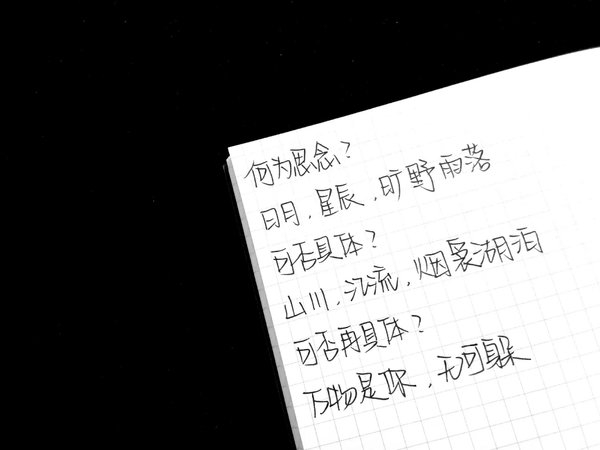 何为思念?
日月,星辰,旷野雨落
可否具体?
山川,江流,烟袅湖泊
可否再具体?
万物是你,无可躲